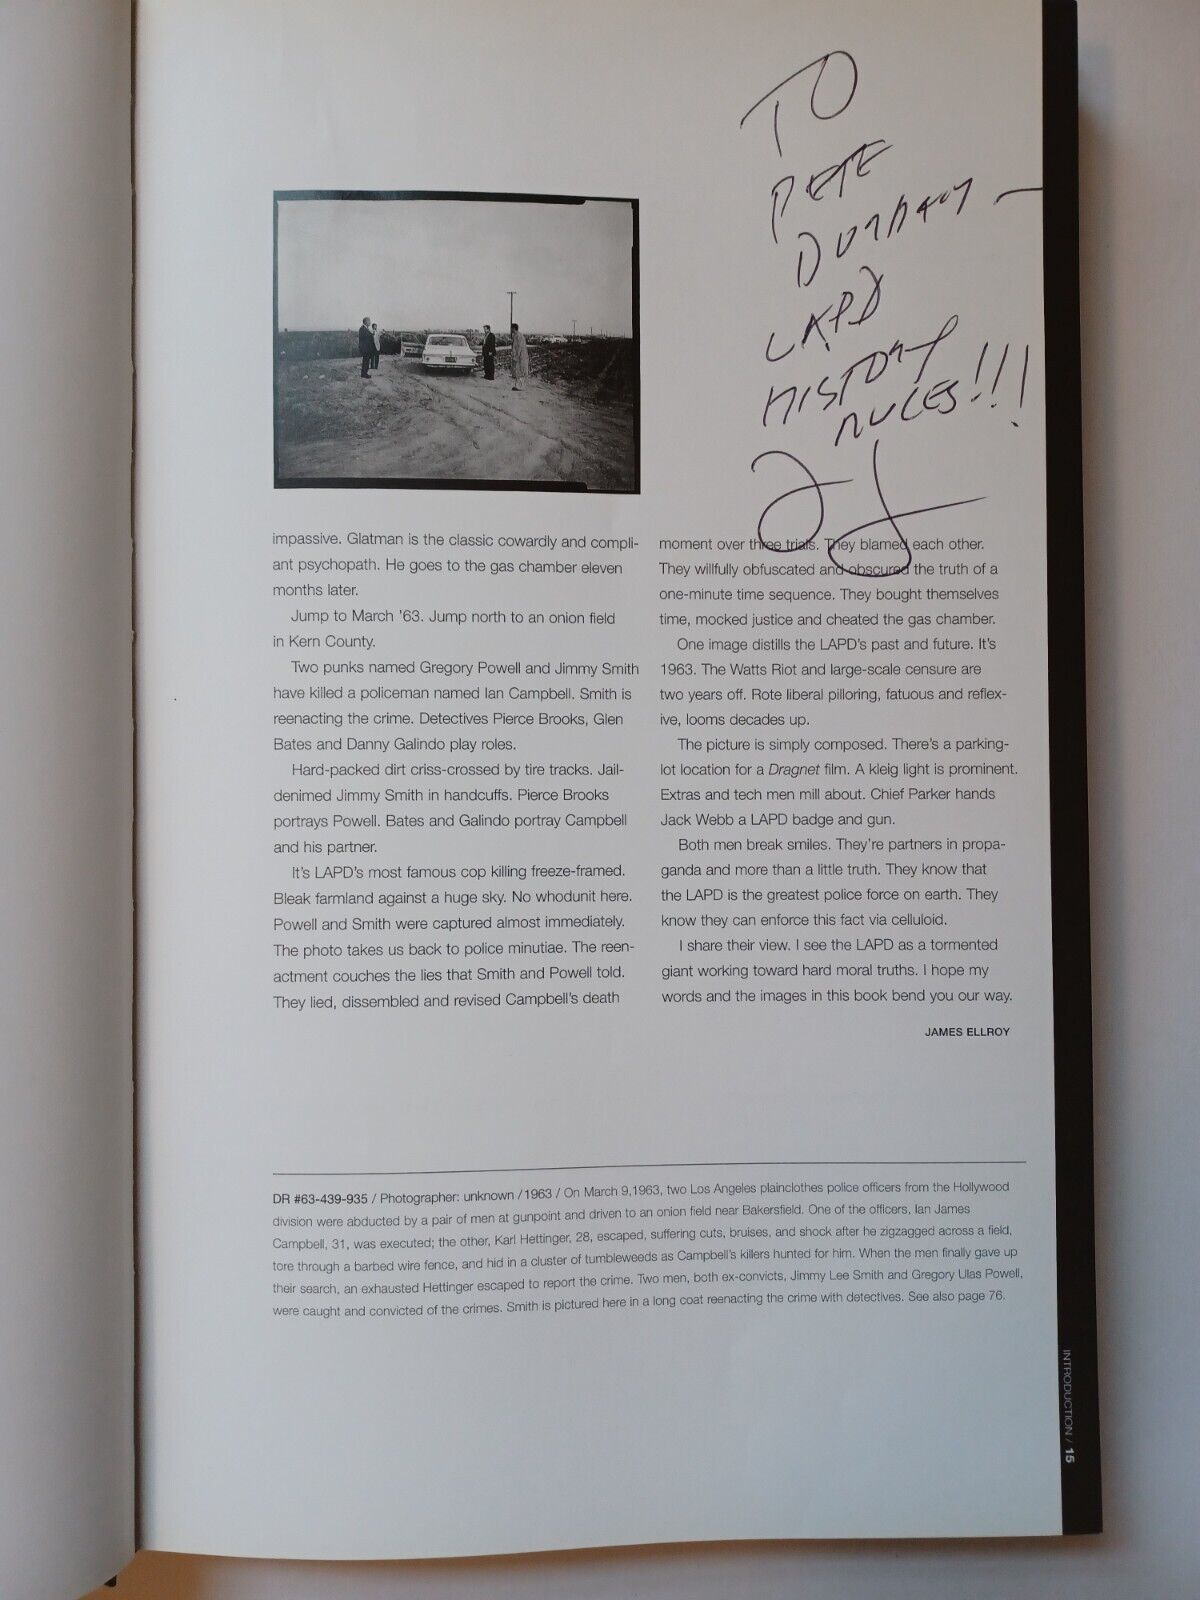 TO
PETE
LAPD
HISTORY
RULES!!!
impassive. Glatman is the classic cowardly and compli-
ant psychopath. He goes to the gas chamber eleven
months later.
Jump to March '63. Jump north to an onion field
in Kern County.
Two punks named Gregory Powell and Jimmy Smith
have killed a policeman named Ian Campbell. Smith is
reenacting the crime. Detectives Pierce Brooks, Glen
Bates and Danny Galindo play roles.
Hard-packed dirt criss-crossed by tire tracks. Jail-
denimed Jimmy Smith in handcuffs. Pierce Brooks
portrays Powell. Bates and Galindo portray Campbell
and his partner.
It's LAPD's most famous cop killing freeze-framed.
Bleak farmland against a huge sky. No whodunit here.
Powell and Smith were captured almost immediately.
The photo takes us back to police minutiae. The reen-
actment couches the lies that Smith and Powell told.
They lied, dissembled and revised Campbell's death
moment over three trials. They blamed each other.
They willfully obfuscated and obscured the truth of a
one-minute time sequence. They bought themselves
time, mocked justice and cheated the gas chamber.
One image distills the LAPD's past and future. It's
1963. The Watts Riot and large-scale censure are
two years off. Rote liberal pilloring, fatuous and reflex-
ive, looms decades up.
The picture is simply composed. There's a parking-
lot location for a Dragnet film. A kleig light is prominent.
Extras and tech men mill about. Chief Parker hands
Jack Webb a LAPD badge and gun.
Both men break smiles. They're partners in propa-
ganda and more than a little truth. They know that
the LAPD is the greatest police force on earth. They
know they can enforce this fact via celluloid.
I share their view. I see the LAPD as a tormented
giant working toward hard moral truths. I hope my
words and the images in this book bend you our way.
JAMES ELLROY
DR #63-439-935 / Photographer: unknown / 1963 / On March 9,1963, two Los Angeles plainclothes police officers from the Hollywood
division were abducted by a pair of men at gunpoint and driven to an onion field near Bakersfield. One of the officers, Ian James
Campbell, 31, was executed; the other, Karl Hettinger, 28, escaped, suffering cuts, bruises, and shock after he zigzagged across a field,
tore through a barbed wire fence, and hid in a cluster of tumbleweeds as Campbell's killers hunted for him. When the men finally gave up
their search, an exhausted Hettinger escaped to report the crime. Two men, both ex-convicts, Jimmy Lee Smith and Gregory Ulas Powell,
were caught and convicted of the crimes. Smith is pictured here in a long coat reenacting the crime with detectives. See also page 76.
INTRODUCTION / 15